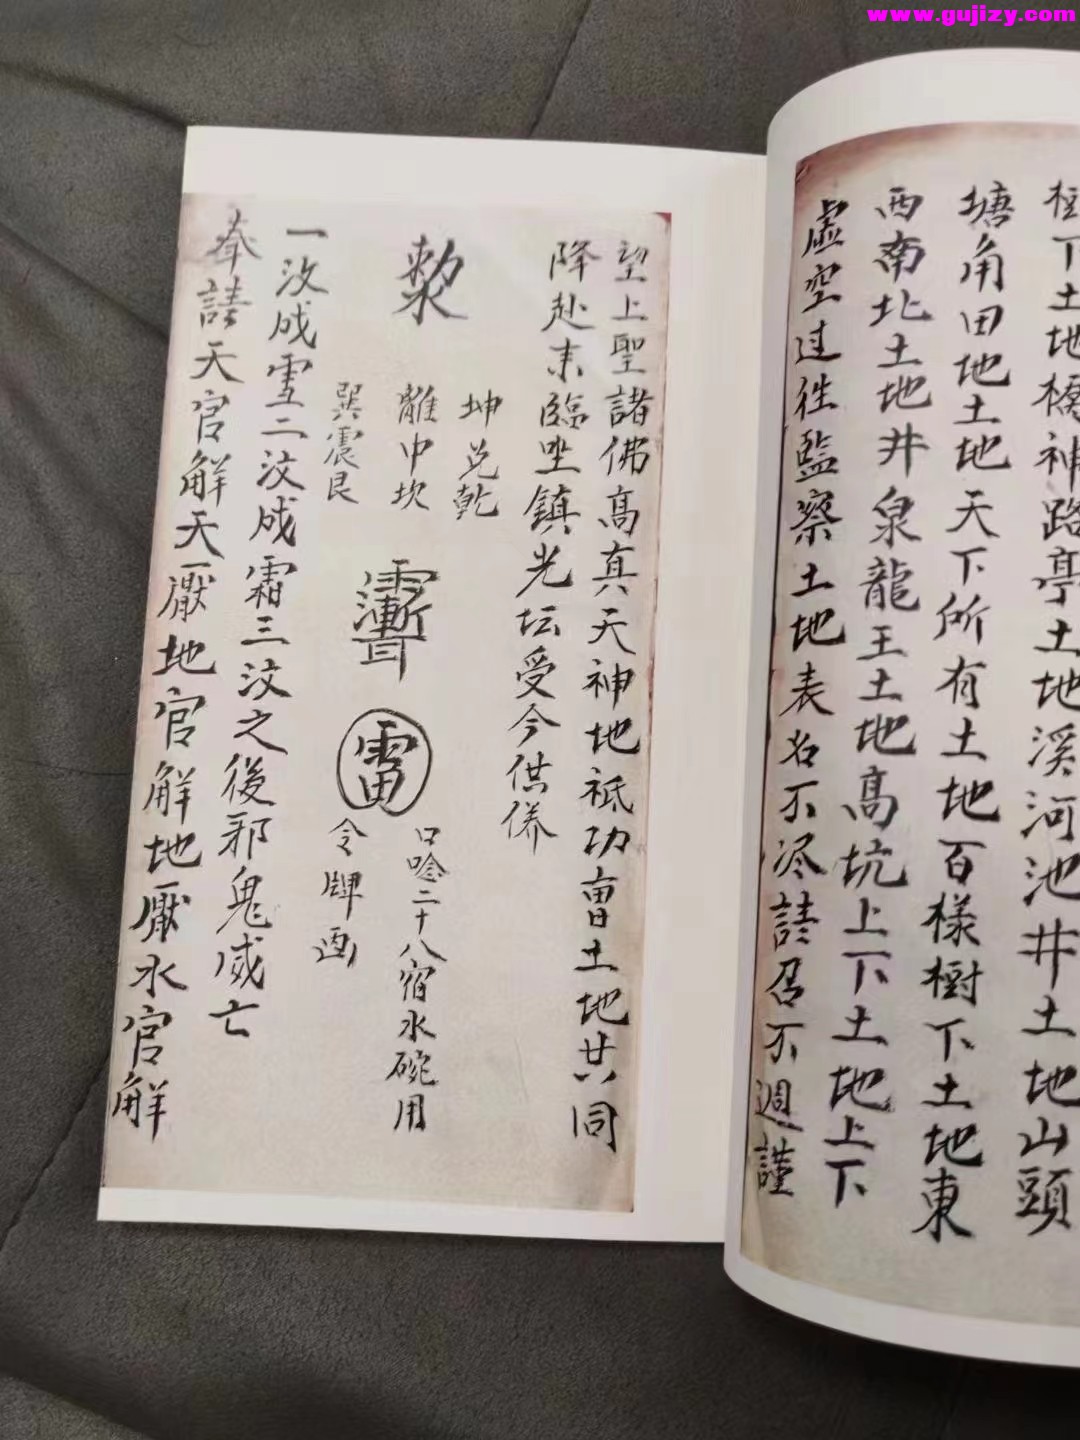 www.gujizy.com
樹下土地橋神路亭土地溪河池井土地山頭
塘角田地土地天下所有土地百樣樹下土地東
西南北土地井泉龍王土地高坑上下土地上下
虚空过往監察土地表名不尽請召不週謹
望上聖諸佛高真天神地祇功曹土地共同
降赴来臨坐鎮光坛受今供养
坤兑乾
離中坎
巽震艮
雷
口唸二十八宿水碗用
令牌画
一汶成雪二汶成霜三汶之後邪鬼烕亡
奉請天官解天厭地官解地厭水官解